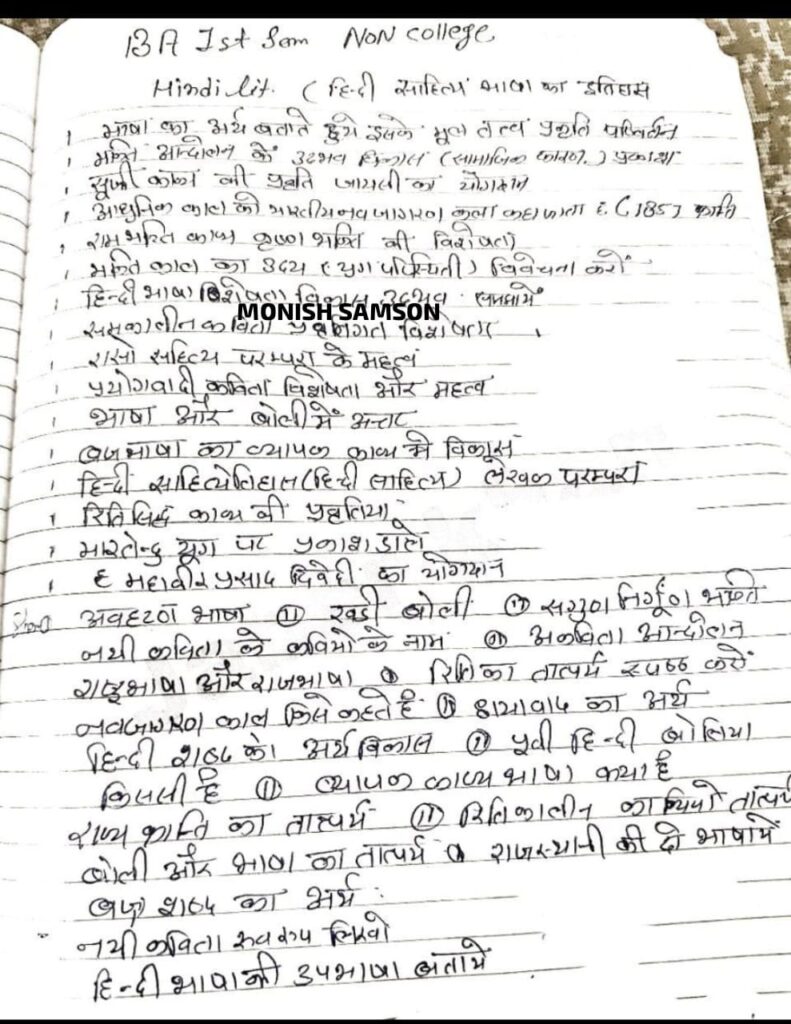 BA Ist Sem NON college
Hindi lit. (हिन्दी साहित्य भाषा का इतिहास
भाषा का अर्थ बताते हुये इसके मूल तत्व प्रकृति परिवर्तन
भक्ति आन्दोलन के उदभव विकास (सामाजिक कारण) प्रकाश
सूफी काव्य की प्रवृति जायसी का योगदान
आधुनिक काल को भारतीय नवजागरण क्यो कहा जाता है (1857 क्रान्ति
रामभक्ति काव्य कृष्ण भक्ति की विशेषता
भक्ति काल का उदय (युग परिस्थिती) विवेचना करो
हिन्दी भाषा विशेषता विकास उदभव समझाये
MONISH SAMSON
समकालीन कविता विशेषता
रासो सहित्य परम्परा के महत्व
प्रयोगवादी कविता विशेषता और महत्व
भाषा और बोली में अन्तर
ब्रजभाषा का व्यापक काव्य मे विकास
हिन्दी साहित्येतिहास (हिन्दी साहित्य) लेखक परम्परा
रितिसिद्ध काव्य की प्रवृतिया
भारतेन्दु यूग पर प्रकाश डाले
महावीर प्रसाद द्विवेदी का योगदान
अवहटठ भाषा ⑪ खडी बोली सगुण निर्गूण भक्ति
नयी कविता के कवियो के नाम अकविता आन्दोलन
राष्ट्रभाषा और राजभाषा रिति का तात्पर्य स्पष्ठ करो
नवजागरण काल किसे कहते है छायावाद का अर्थ
हिन्दी शब्द का अर्थ विकास पूर्वी हिन्दी बोलिया
कितनी है ⑪ व्यापक काव्य भाषा क्या है
राज्य क्रान्ति का तात्पर्य ⑪ रितिकालीन तात्पर्य
बोली और भाषा का तात्पर्य राजस्थानी की दो भाषाये
ब्रज शब्द का अर्थ
नयी कविता स्वरूप लिखो
हिन्दी भाषा की उपभाषा बताये